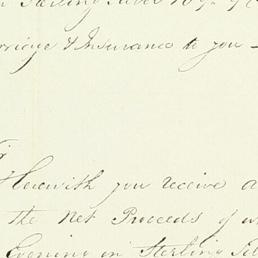 Sterling Silver
rriage & Insurance to you —
Herewith you receive a
the Net Proceeds of
Evening in Sterling Sil